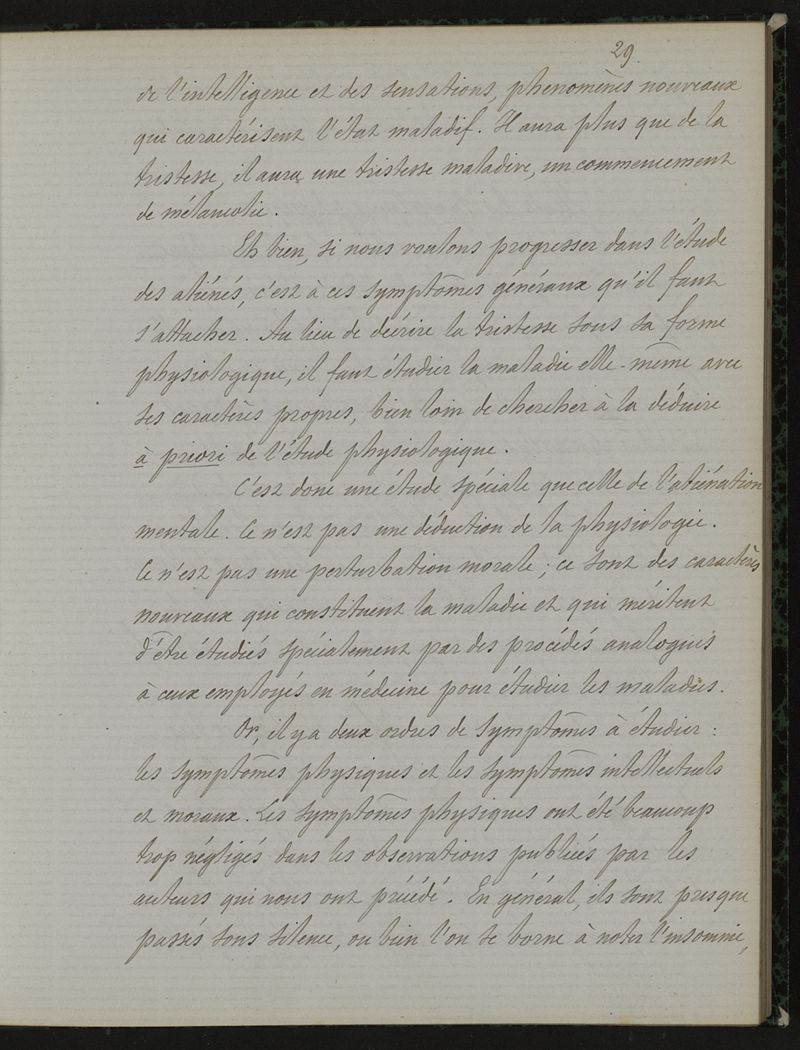 29.
de l'intelligence et des sensations, phénomènes nouveaux
qui caractérisent l'état maladif. Il aura plus que de la
tristesse, il aura une tristesse maladive, un commencement
de mélancolie.
Eh bien, si nous voulons progresser dans l'étude
des aliénés, c'est à ces symptômes généraux qu'il faut
s'attacher. Au lieu de décrire la tristesse sous sa forme
physiologique, il faut étudier la maladie elle-même avec
ses caractères propres, bien loin de chercher à la déduire
à priori de l'étude physiologique.
C'est donc une étude spéciale que celle de l'aliénation
mentale. Ce n'est pas une déduction de la physiologie.
Ce n'est pas une perturbation morale ; ce sont des caractères
nouveaux qui constituent la maladie et qui méritent
d'être étudiés spécialement par des procédés analogues
à ceux employés en médecine pour étudier les maladies.
Or, il y a deux ordres de symptômes à étudier :
les symptômes physiques et les symptômes intellectuels
et moraux. Les symptômes physiques ont été beaucoup
trop négligés dans les observations publiées par les
auteurs qui nous ont précédé. En général, ils sont presque
passés sous silence, ou bien l'on se borne à noter l'insomnie,